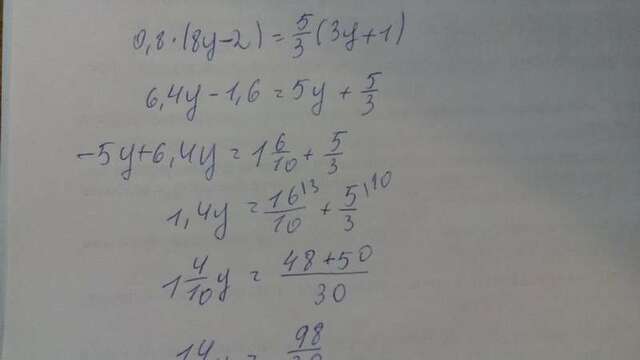 0,8·(8y-2)=5/3(3y+1)
6,4y-1,6=5y+5/3
-5y+6,4y=1 6/10+5/3
1,4y=16/10 ⁾³+5/3 ⁾¹⁰
1 4/10 y=48+50/30
14 98